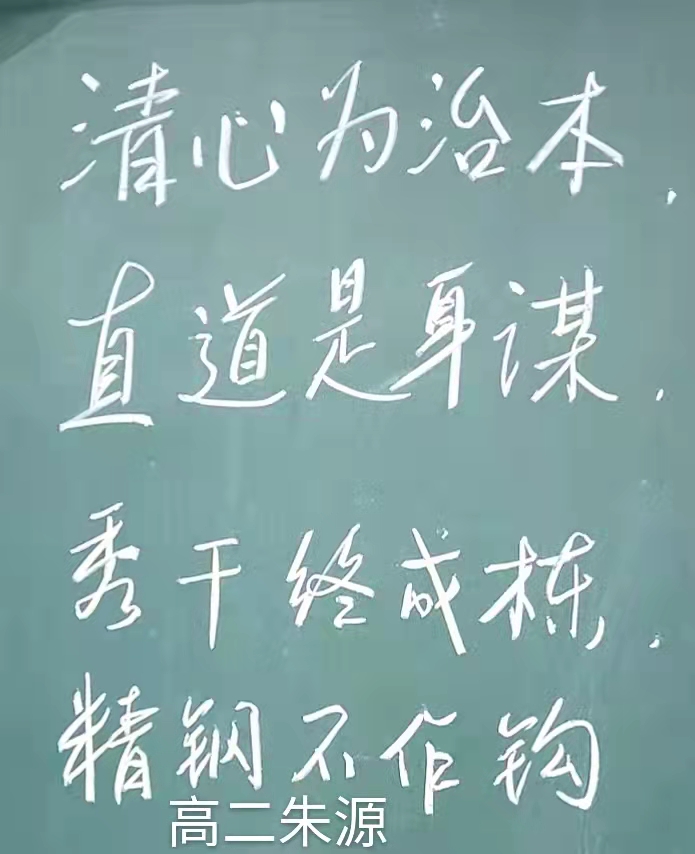 清心为治本,
直道是身谋.
秀干终成栋,.
精钢不作钩
高二朱源